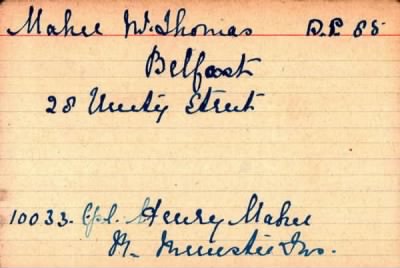 Maher Mr. Thomas D.P 65
Belfast
28 Unity Street
10033. Cpl. Henry Maher
R. Munster Fus.